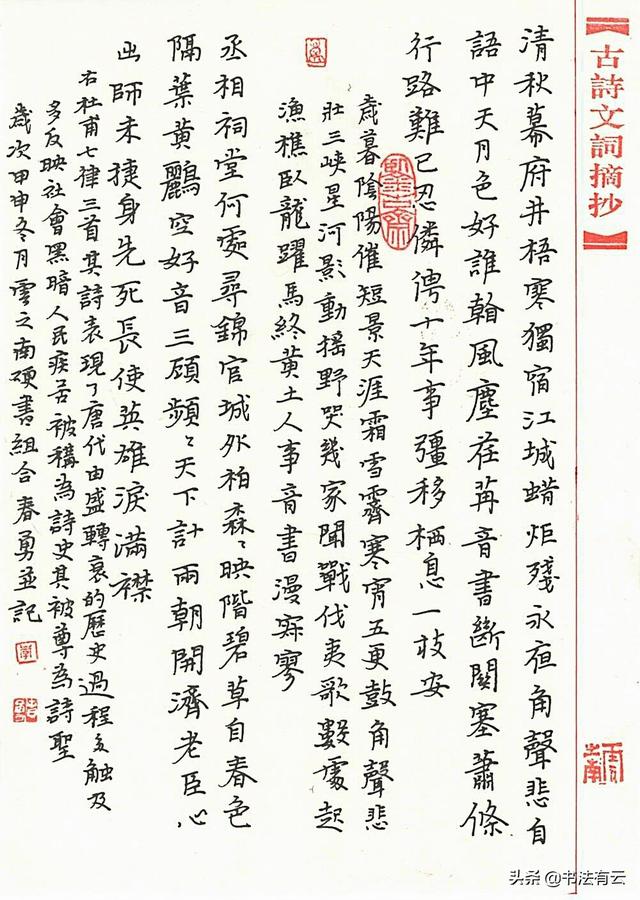 【古詩文詞摘抄】
清秋幕府井梧寒獨宿江城蜡炬殘永夜角聲悲自
語中天月色好誰看風塵荏苒音書斷關塞蕭條
行路難已忍憐俜十年事彊移栖息一枝安
歲暮陰陽催短景天涯霜雪霽寒宵五更鼓角聲悲
壯三峽星河影動搖野哭幾家聞戰伐夷歌數處起
漁樵臥龍躍馬終黄土人事音書漫寂寥
丞相祠堂何處尋錦官城外柏森〻映階碧草自春色
隔葉黄鸝空好音三顧頻〻天下計兩朝開濟老臣心
出師未捷身先死長使英雄淚滿襟
右杜甫七律三首其詩表現了唐代由盛轉衰的歷史過程多觸及
多反映社會黑暗人民疾苦被稱為詩史其被尊為詩聖
歲次甲申冬月雲之南硬書組合春勇並記
头条 @书法有云